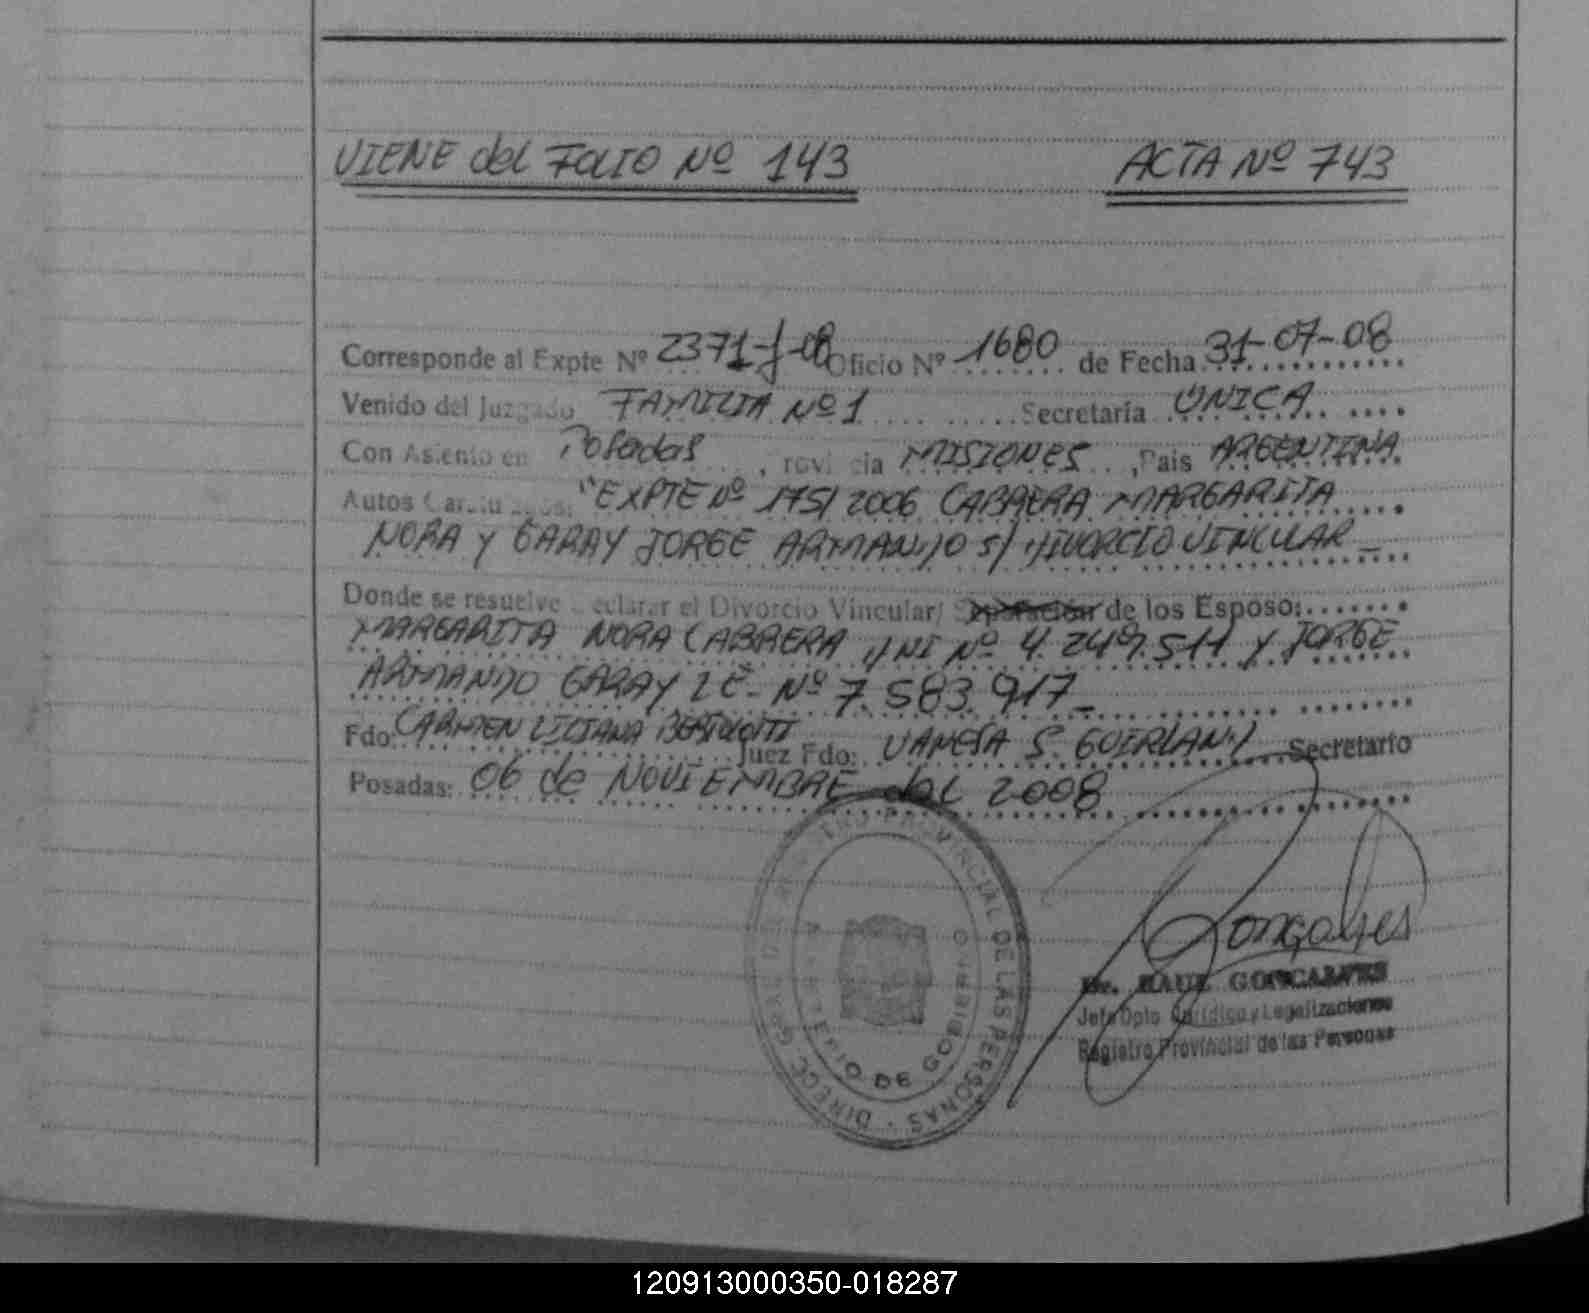 VIENE del FOLIO Nº 143 ACTA Nº 743
Corresponde al Expte Nº 2371-J-08 Oficio Nº 1680 de Fecha 31-07-08
Venido del Juzgado FAMILIA Nº 1 Secretaria ÚNICA
Con Asiento en Posadas, rovi cia MISIONES, Pais ARGENTINA
Autos "EXPTE Nº 175/2006 CABRERA MARGARITA
NORA Y GARAY JORGE ARMANDO S/ DIVORCIO VINCULAR
Donde se resuelve eclarar el Divorcio Vincular/ Separación de los Esposo:
MARGARITA NORA CABRERA DNI Nº 4.249.511 Y JORGE
ARMANDO GARAY L.E. Nº 7.583.917
Fdo: CARMEN LILIANA Juez Fdo: VANESA S. Secretario
Posadas: 06 de NOVIEMBRE del 2008
DIRECC GRAL DEL REGISTRO PROVINCIAL DE LAS PERSONAS
DE GOBIERNO
Gonçalves
Dr. RAUL GONCALVES
Jefe Dpto Jurídico y Legalizaciones
Registro Provincial de las Personas
120913000350-018287